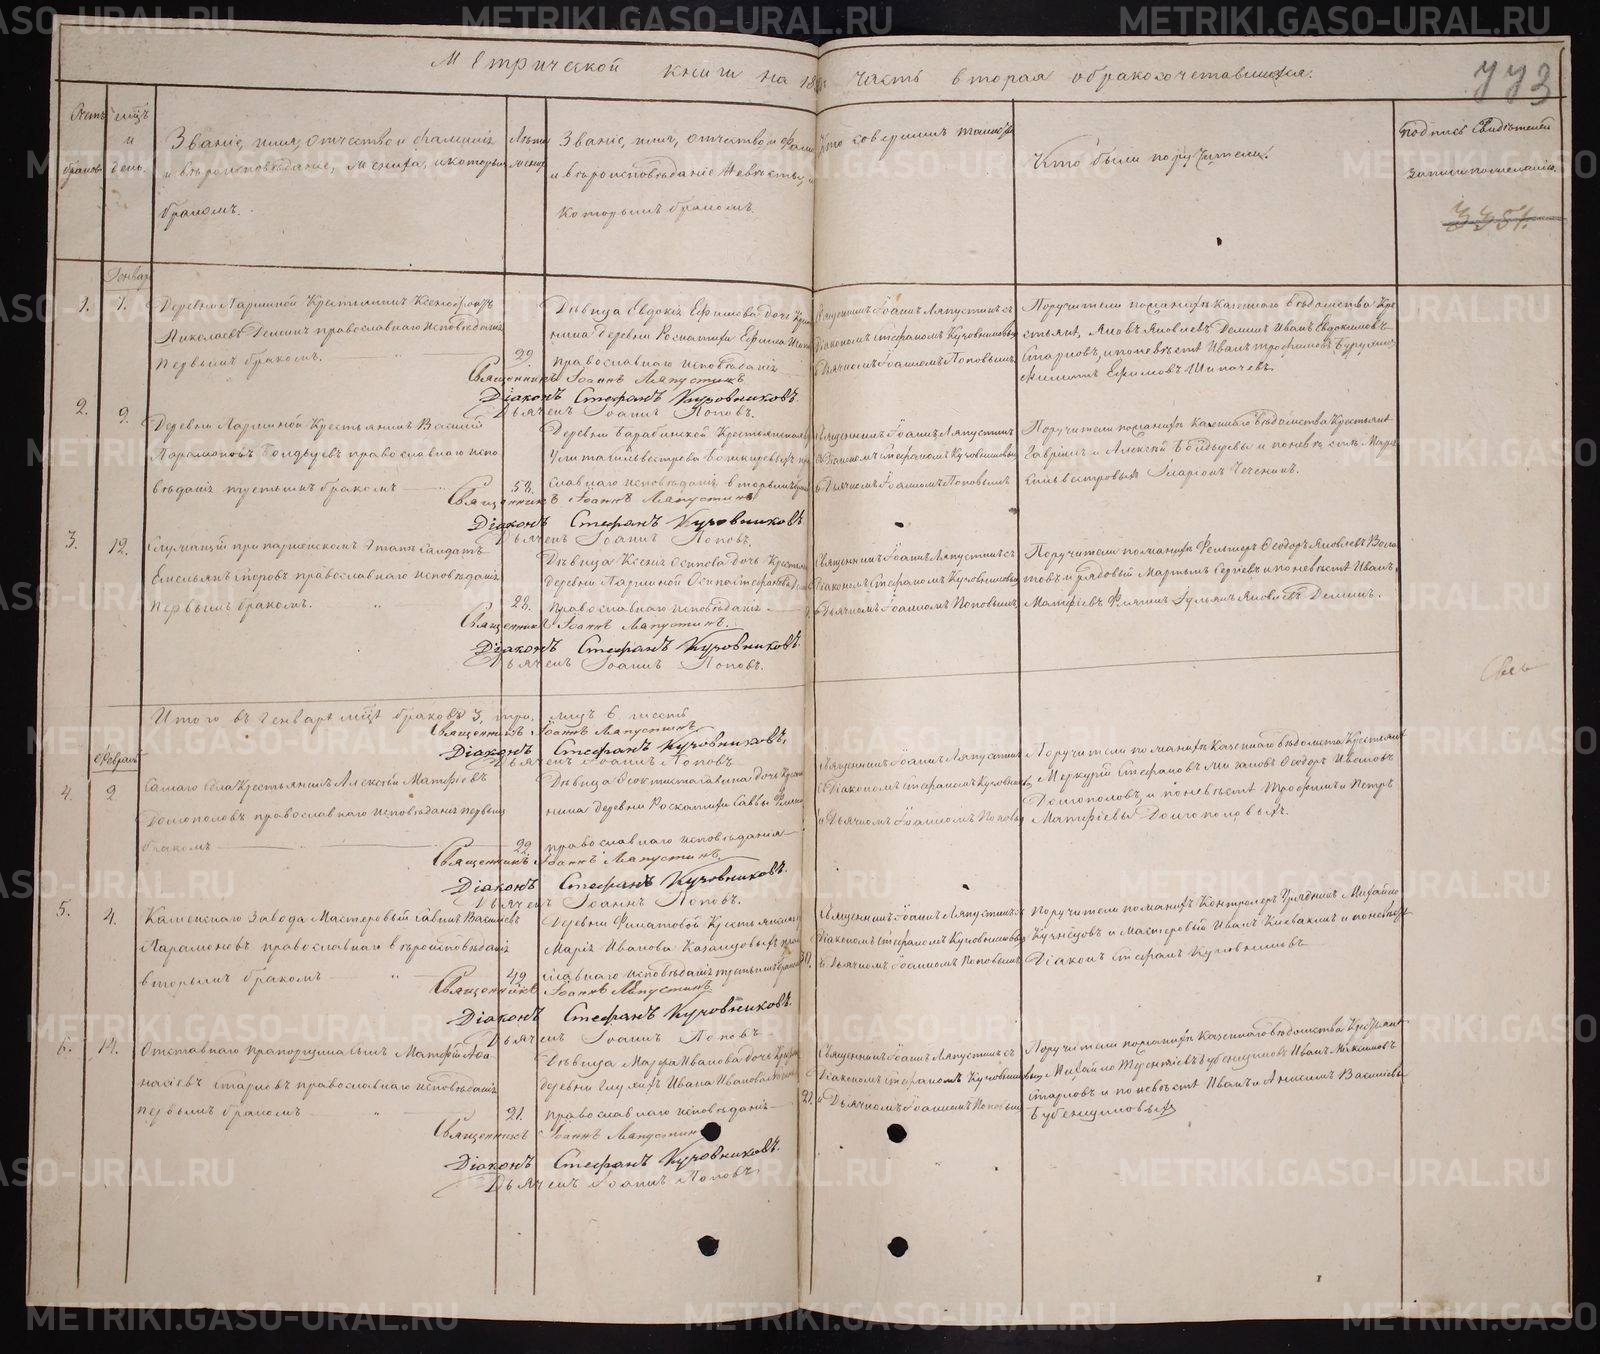 Метрической книги на 18 часть вторая о бракосочетавшихся.
443
Счетъ браковъ
мѣсяцъ и день.
Званіе, имя, отчество и фамилія
и вѣроисповѣданіе, жениха, и которымъ
бракомъ.
Лѣта жениха
Званіе, имя, отчество и фами
и вѣроисповѣданіе невѣсты, и
которымъ бракомъ.
Кто совершилъ таинство
Кто были поручители.
Подпись свидѣтелей
записи по желанію.
3351.
Генварь
1.
7.
Деревни Лариной Крестьянинъ Ксенофонтъ
Николаевъ Деминъ православнаго исповѣданія
первымъ бракомъ.
22.
Дѣвица Евдокія Ефимова дочь Крестья
нина деревни Роскатихи Ефима
православнаго исповѣданія
Священникъ Іоаннъ Ляпустинъ съ
Діакономъ Стефаномъ Кузовниковымъ
и Дьячкомъ Іоанномъ Поповымъ
Поручители по женихѣ казеннаго вѣдомства Кре
стьяне, Яковъ Яковлевъ Деминъ Иванъ Евдокимовъ
Старковъ, и по невѣстѣ Иванъ Трофимовъ
Филиппъ Ефимовъ Шипачевъ.
Священникъ Іоаннъ Ляпустинъ
Діаконъ Стефанъ Кузовниковъ.
Дьячекъ Іоаннъ Поповъ.
2.
9.
Деревни Лариной Крестьянинъ Василій
Парамоновъ Болдыревъ православнаго испо
вѣданія третьимъ бракомъ
58.
Деревни Барабинской Крестьянская
славнаго исповѣданія вторымъ бракомъ
Священникъ Іоаннъ Ляпустинъ
съ Діакономъ Стефаномъ Кузовниковымъ
и Дьячкомъ Іоанномъ Поповымъ
Поручители по женихѣ Казеннаго вѣдомства Крестьяне
Гавріилъ и Алексѣй Болдыревы и по невѣстѣ Марко
Сильвестровыхъ Иларіонъ Чеченинъ.
Священникъ Іоаннъ Ляпустинъ
Діаконъ Стефанъ Кузовниковъ
Дьячекъ Іоаннъ Поповъ.
3.
12.
Служащій при этапѣ Солдатъ
Емельянъ православнаго исповѣданія
первымъ бракомъ.
28.
Дѣвица Ксенія Осипова дочь Крестьян
деревни Лариной Осипа Стефанова
православнаго исповѣданія
Священникъ Іоаннъ Ляпустинъ съ
Діакономъ Стефаномъ Кузовниковымъ
и Дьячкомъ Іоанномъ Поповымъ
Поручители по женихѣ Фельдшеръ Ѳеодоръ Яковлевъ
и рядовый Мартынъ Сергѣевъ и по невѣстѣ Иванъ
Матфіевъ Ульянъ Яковлевъ Деминъ.
Священникъ Іоаннъ Ляпустинъ.
Діаконъ Стефанъ Кузовниковъ.
Дьячекъ Іоаннъ Поповъ.
Итого въ генварѣ мцѣ браковъ 3, три, лицъ 6 шесть
Священникъ Іоаннъ Ляпустинъ
Діаконъ Стефанъ Кузовниковъ.
Дьячекъ Іоаннъ Поповъ
Февраль
4.
2
Самаго села Крестьянинъ Алексѣй Матфіевъ
Долгополовъ православнаго исповѣданія первымъ
бракомъ
22.
Дѣвица Ѳеоктиста Савина дочь Крестья
нина деревни Роскатихи Саввы
православнаго исповѣданія
Священникъ Іоаннъ Ляпустинъ
съ Діакономъ Стефаномъ Кузовниковымъ
и Дьячкомъ Іоанномъ Поповымъ
Поручители по женихѣ Казеннаго вѣдомства Крестьяне
Меркурій Стефановъ Ѳеодоръ Ивановъ
Долгополовъ, и по невѣстѣ Трофимъ и Петръ
Матфіевы Долгополовыхъ.
Священникъ Іоаннъ Ляпустинъ.
Діаконъ Стефанъ Кузовниковъ.
Дьячекъ Іоаннъ Поповъ.
5.
4.
Каменскаго Завода Мастеровый Савинъ Васильевъ
Парамоновъ православнаго вѣроисповѣданія
вторымъ бракомъ
49
Деревни Филатовой Крестьянская
Марія Иванова Казанцовыхъ право
славнаго исповѣданія третьимъ бракомъ
37.
Священникъ Іоаннъ Ляпустинъ съ
Діакономъ Стефаномъ Кузовниковымъ
и Дьячкомъ Іоанномъ Поповымъ
Поручители по женихѣ Контролеръ Урядникъ Михайло
Кузнецовъ и Мастеровый Иванъ и по невѣстѣ
Діаконъ Стефанъ Кузовниковъ
Священникъ Іоаннъ Ляпустинъ
Діаконъ Стефанъ Кузовниковъ.
Дьячекъ Іоаннъ Поповъ
6.
14.
Отставнаго прапорщика сынъ Матфѣй Афа
насіевъ Старковъ православнаго исповѣданія
первымъ бракомъ
21.
Дѣвица Марфа Иванова дочь Крестьян
деревни Глухихъ Ивана Иванова
православнаго исповѣданія
21.
Священникъ Іоаннъ Ляпустинъ съ
Діакономъ Стефаномъ Кузовниковымъ
и Дьячкомъ Іоанномъ Поповымъ
Поручители по женихѣ Казеннаго вѣдомства Крестьяне
Михайло Терентіевъ Бубенщиковъ Иванъ Максимовъ
Старковъ и по невѣстѣ Иванъ и Анисимъ Васильевы
Бубенщиковыхъ
Священникъ Іоаннъ Ляпустинъ
Діаконъ Стефанъ Кузовниковъ.
Дьячекъ Іоаннъ Поповъ
METRIKI.GASO-URAL.RU